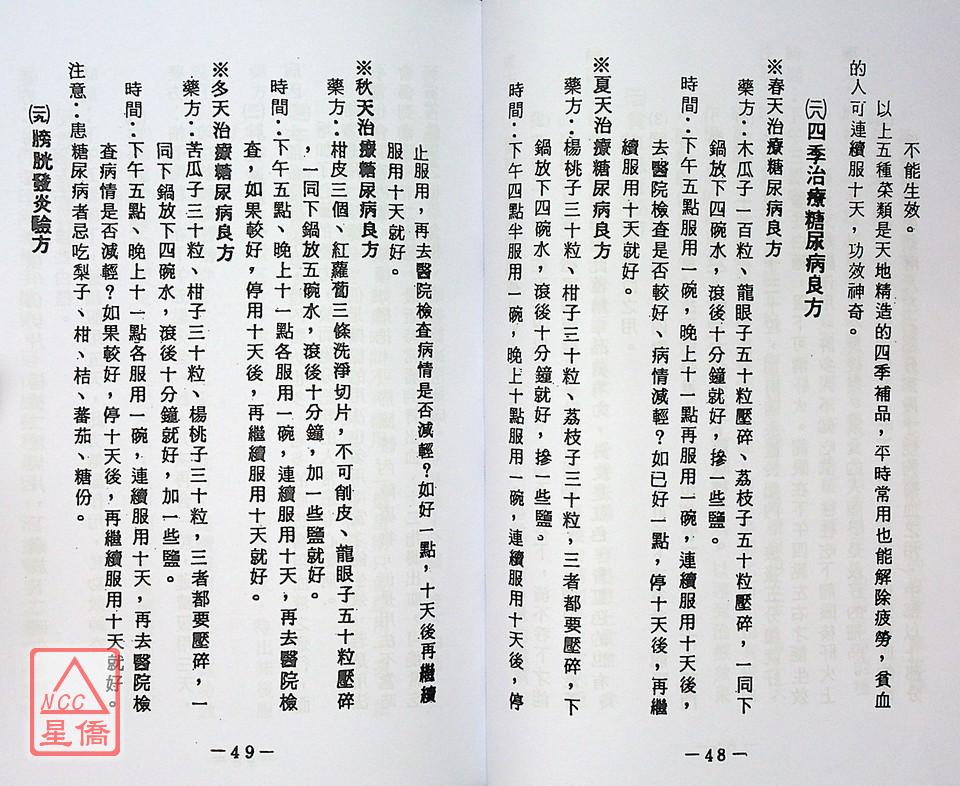 不能生效。
以上五種菜類是天地精造的四季補品，平時常用也能解除疲勞，貧血
的人可連續服十天，功效神奇。
㈥四季治療糖尿病良方
※春天治療糖尿病良方
藥方：木瓜子一百粒、龍眼子五十粒壓碎、荔枝子五十粒壓碎，一同下
鍋放下四碗水，滾後十分鐘就好，摻一些鹽。
時間：下午五點服用一碗，晚上十一點再服用一碗，連續服用十天，
去醫院檢查是否較好、病情減輕？如已好一點，停十天後，再繼
續服用十天就好。
※夏天治療糖尿病良方
藥方：楊桃子三十粒、柑子三十粒、荔枝子三十粒，三者都要壓碎，下
鍋放下四碗水，滾後十分鐘就好，摻一些鹽。
時間：下午四點半服用一碗，晚上十點服用一碗，連續服用十天後，停
—48—
止服用，再去醫院檢查病情是否減輕？如好一點，十天後再繼續
服用十天就好。
※秋天治療糖尿病良方
藥方：柑皮三個、紅蘿蔔三條洗淨切片，不可創皮、龍眼子五十粒壓碎
，一同下鍋放五碗水，滾後十分鐘，加一些鹽就好。
時間：下午五點、晚上十一點各服用一碗，連續服用十天，再去醫院檢
查，如果較好，停用十天後，再繼續服用十天就好。
※冬天治療糖尿病良方
藥方：苦瓜子三十粒、柑子三十粒、楊桃子三十粒，三者都要壓碎，一
同下鍋放下四碗水，滾後十分鐘就好，加一些鹽。
時間：下午五點、晚上十一點各服用一碗，連續服用十天，再去醫院檢
查病情是否減輕？如果較好，停十天後，再繼續服用十天就好。
注意：患糖尿病者忌吃梨子、柑、桔、蕃茄、糖份。
膀胱發炎驗方
—49—
NCC
星僑